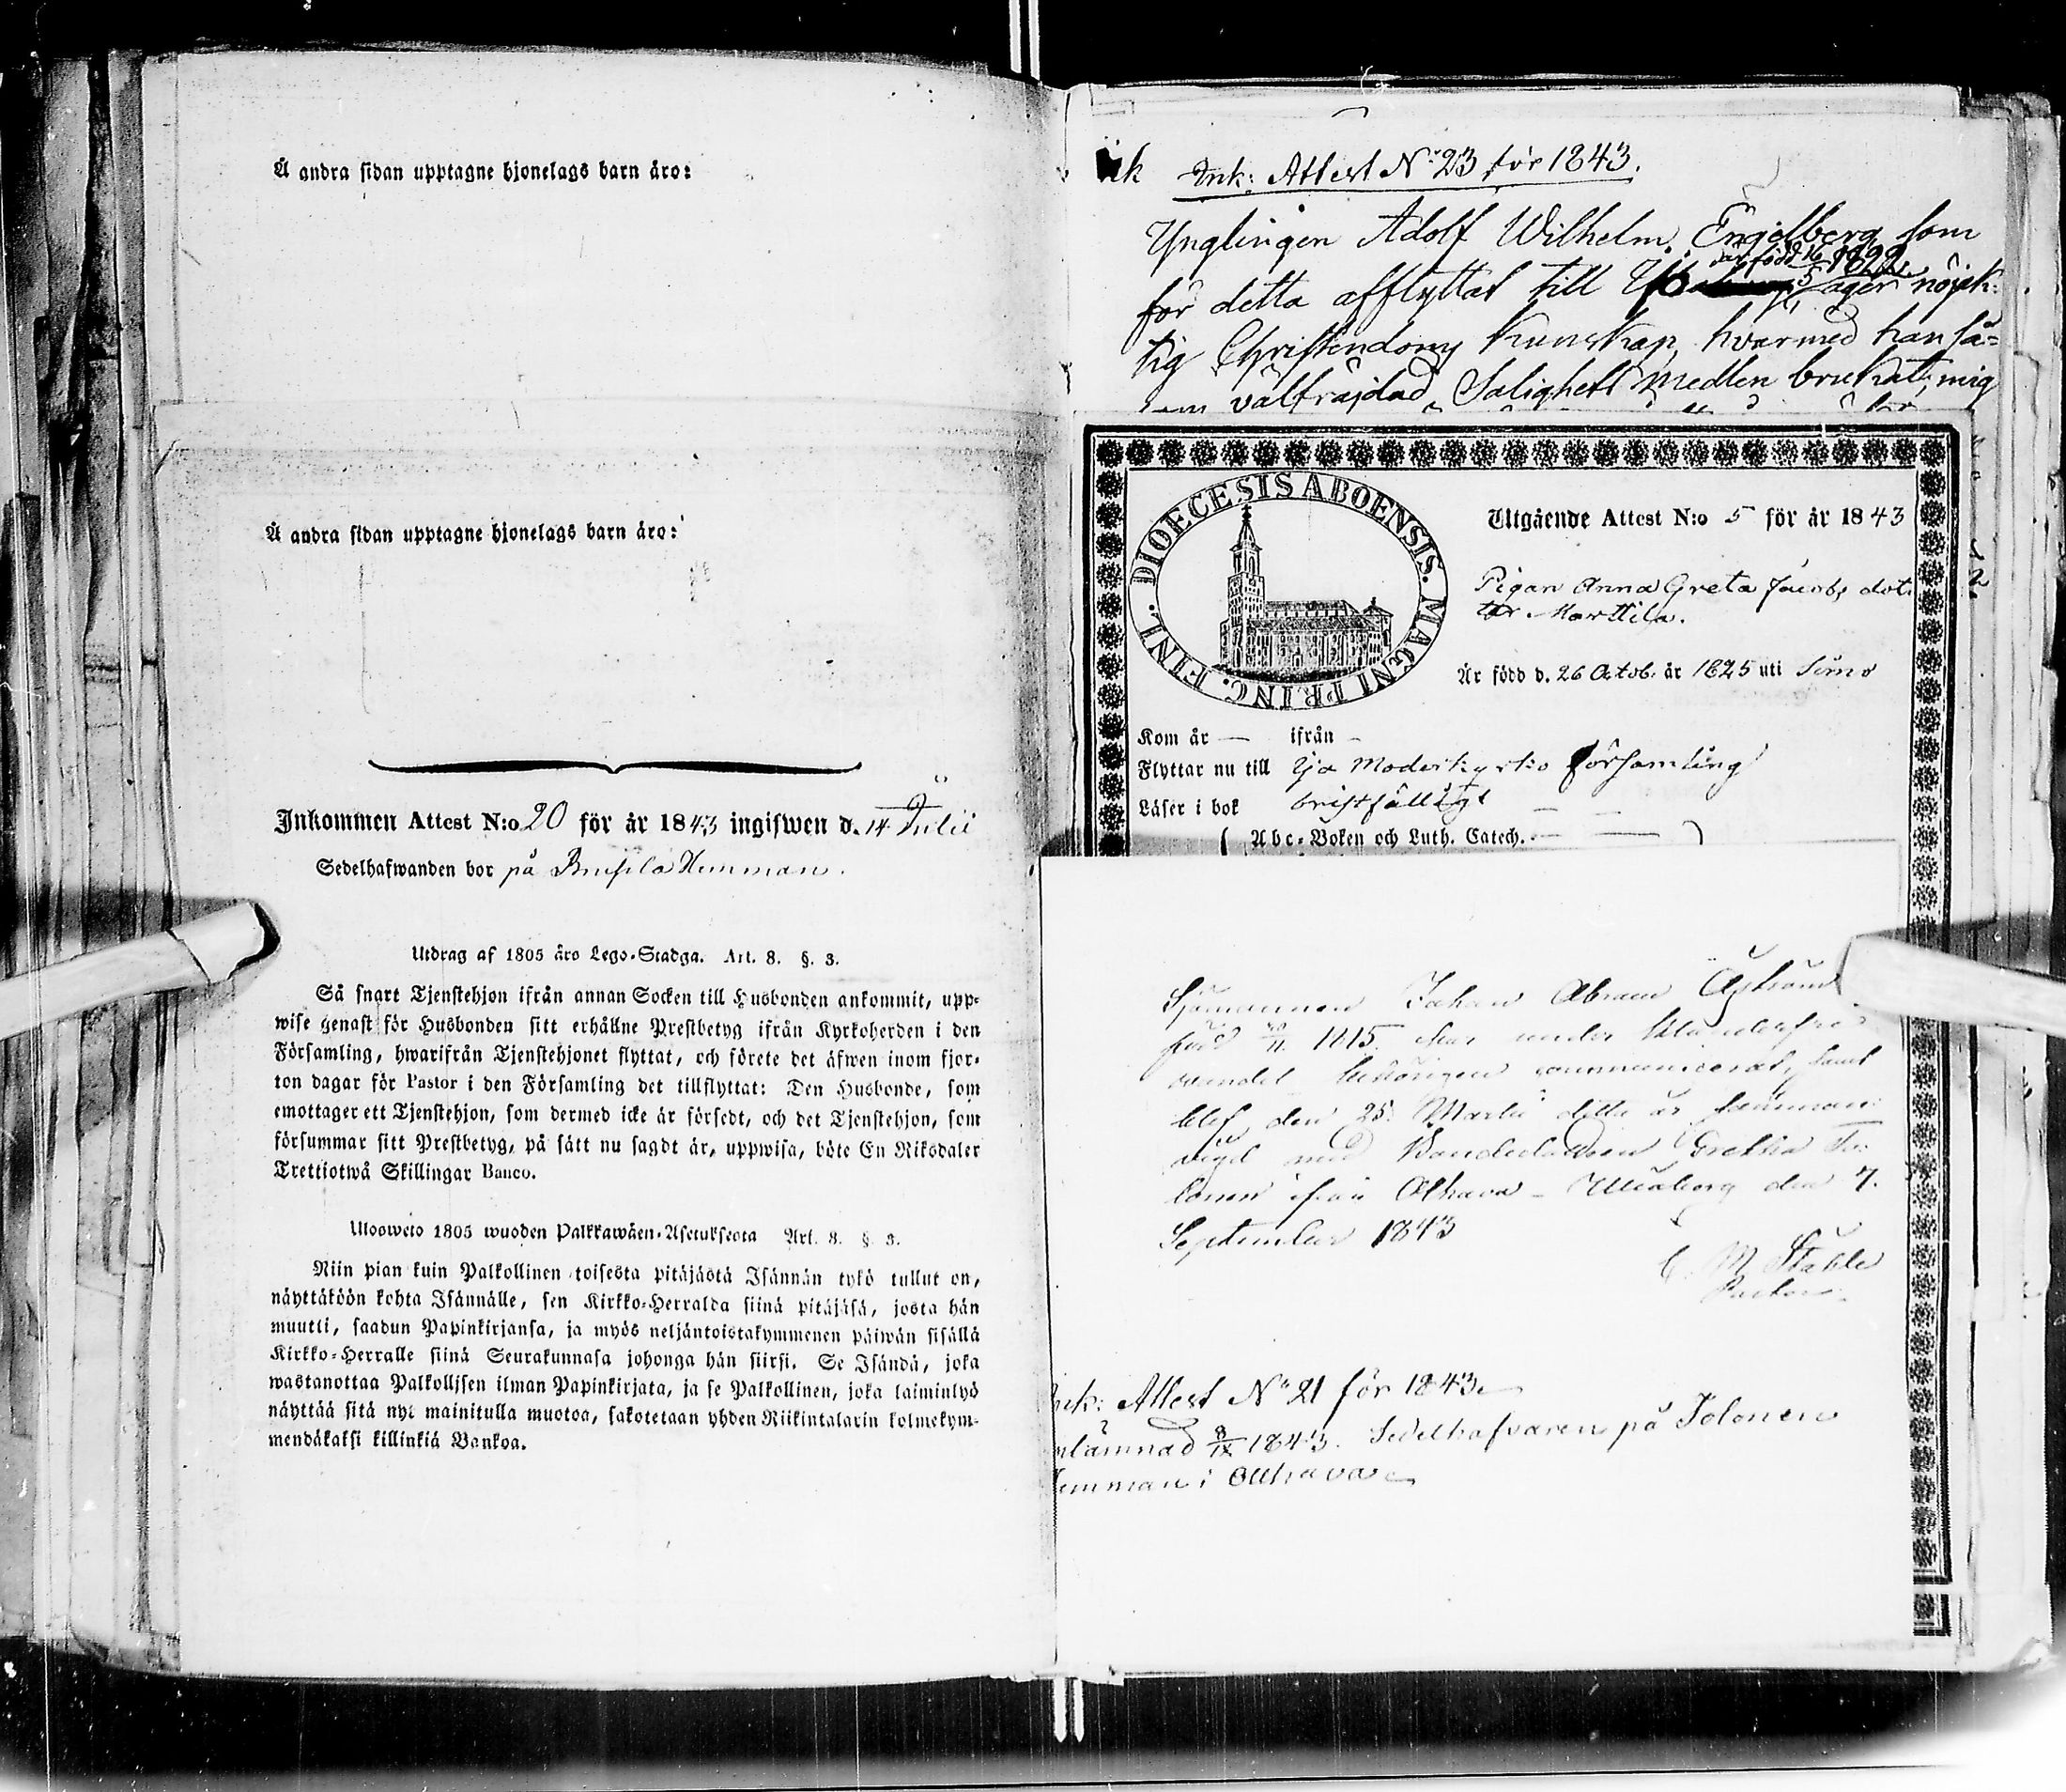 Å andra sidan upptagne hjonelags barn äro:
Å andra sidan upptagne hjonelags barn äro:
Inkommen Attest N:o 20 för år 1843 ingifwen d. 14 Julii
Sedelhafwanden bor på Hemman.
Utdrag af 1805 års Lego-Stadga. Art. 8. §. 3.
Så snart Tjenstehjon ifrån annan Socken till Husbonden ankommit, upp-
wise genast för Husbonden sitt erhållne Prestbetyg ifrån Kyrkoherden i den
Församling, hwarifrån Tjenstehjonet flyttat, och förete det äfwen inom fjor-
ton dagar för Pastor i den Församling det tillflyttat: Den Husbonde, som
emottager ett Tjenstehjon, som dermed icke är försedt, och det Tjenstehjon, som
försummar sitt Prestbetyg, på sätt nu sagdt är, uppwisa, böte En Riksdaler
Trettiotwå Skillingar Banco.
Ulosweto 1805 wuoden Palkkawäen-Asetuksesta Art. 8. § 3.
Niin pian kuin Palkollinen toisesta pitäjästä Isännän tykö tullut on,
näyttäköön kohta Isännälle, sen Kirkko-Herralda siinä pitäjäsä, josta hän
muutti, saadun Papinkirjansa, ja myös neljäntoistakymmenen päiwän sisällä
Kirkko-Herralle siinä Seurakunnasa johonga hän siirsi. Se Isändä, joka
wastanottaa Palkollisen ilman Papinkirjata, ja se Palkollinen, joka laiminlyö
näyttää sitä nyt mainitulla muotoa, sakotetaan yhden Riikintalarin kolmekym-
mendäkaksi killinkiä Bankoa.
Ink: Attest N:o 23 för 1843.
Ynglingen Adolf Wilhelm Engelberg som
är född 16/5
för detta afflyttat till äger nöjak-
tig Christendoms kunskap, hvarmed han så-
som välfräjdad Salighets medlen brukat; mig
DIOECESIS ABOENSIS. MAGNI PRINC. FINL.
Utgående Attest N:o 5 för år 1843
Pigan Anna Greta Jacobs dot-
ter Marttila.
Är född d. 26 Octob. år 1825 uti Simo
Kom år — ifrån —
Flyttar nu till Ijo Moderkyrko församling
Läser i bok bristfälligt
Abc-Boken och Luth. Catech. — —
Sjömannen Johan Abram
född 11. 1815. har under
vandel behörigen communicerat, samt
blef den 25. Martii detta år samman-
vigd med Bondedottren Gretha To-
lonen ifrån Olhava – Uleåborg den 7.
September 1843
C. M. Ståhle
Pastor.
Ink: Attest N:o 21 för 1843.
Inlämnad 8/IX 1843. Sedelhafvaren på Tolonen
Hemman i Olhava